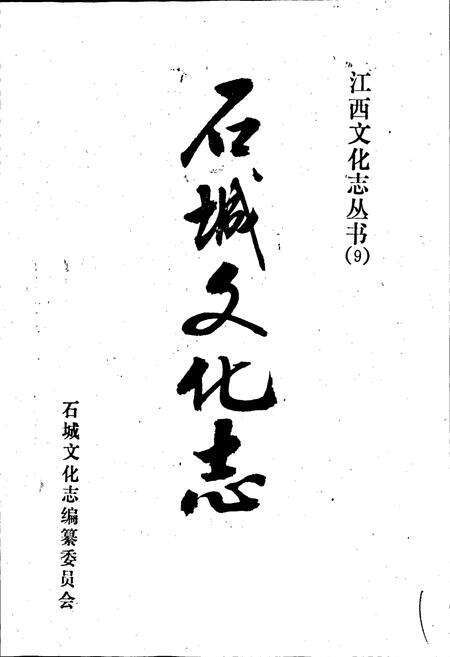 江西文化志丛书(9)
石城文化志
石城文化志编纂委员会